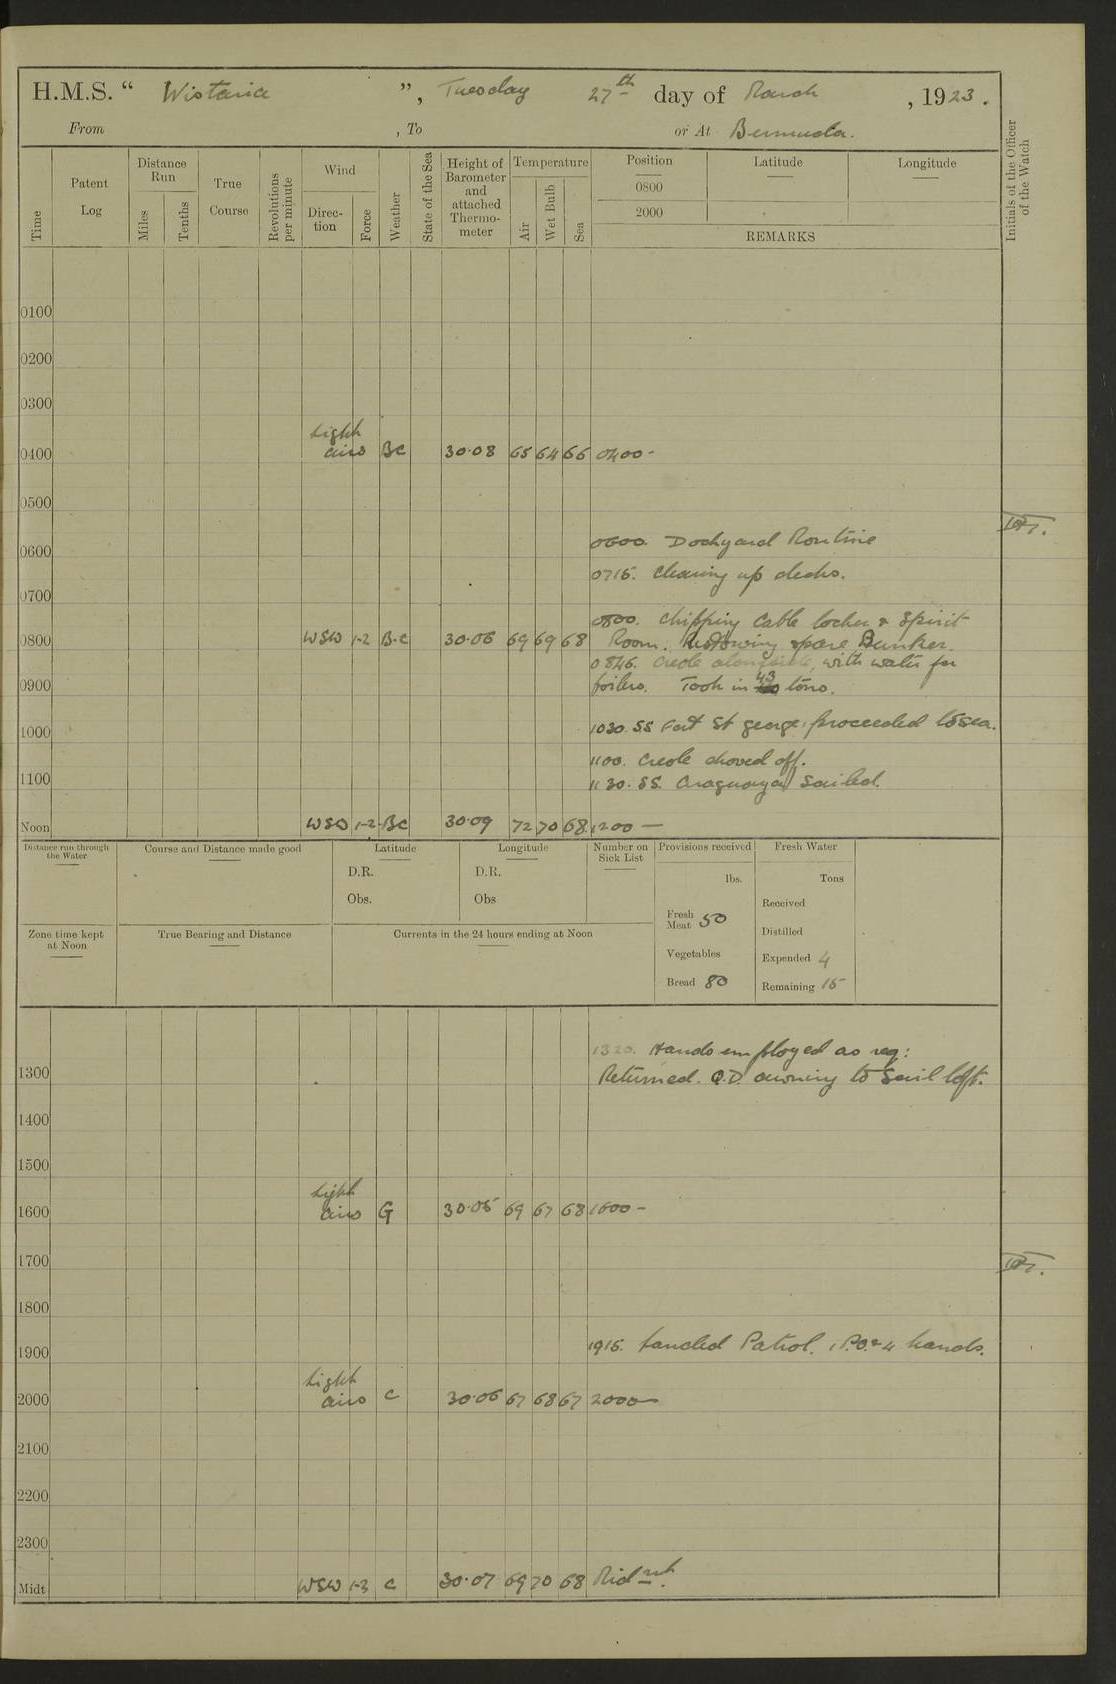 H.M.S. “ Wistaria ”, Tuesday 27th day of March, 1923.
From , To or At Bermuda.
Time
Patent Log
Distance Run
Miles
Tenths
True Course
Revolutions per minute
Wind
Direction
Force
Weather
State of the Sea
Height of Barometer and attached Thermometer
Temperature
Air
Wet Bulb
Sea
Position
0800
2000
Latitude
Longitude
REMARKS
Initials of the Officer of the Watch
0100
0200
0300
0400 Light airs BC 30.08 65 64 66 0400 -
0500
0600 0600. Dockyard Routine
0715. Cleaning up decks.
0700
0800. Chipping Cable locker & Spirit
0800 WSW 1-2 B.C 30.06 69 69 68 Room. Restowing spare Bunker.
0845. Creole alongside, with water for
0900 boilers. Took in 43 tons.
1000 1030. SS Fort St George proceeded to sea.
1100. Creole shoved off.
1100 1130. SS. Araguaya Sailed.
Noon WSW 1-2 BC 30.09 72 70 68 1200 —
Distance run through the Water
Course and Distance made good
Latitude
D.R.
Obs.
Longitude
D.R.
Obs
Number on Sick List
Provisions received
lbs.
Fresh Meat 50
Vegetables
Bread 80
Fresh Water
Tons
Received
Distilled
Expended 4
Remaining 15
Zone time kept at Noon
True Bearing and Distance
Currents in the 24 hours ending at Noon
1320. Hands employed as req:
1300 Returned Q.D. awning to Sail loft.
1400
1500
1600 Light airs G 30.05 69 67 68 1600 -
1700
1800
1900 1915. Landed Patrol. 1 P.O. & 4 hands.
2000 Light airs C 30.06 67 68 67 2000 —
2100
2200
2300
Midt WSW 1-3 C 30.07 69 70 68 Midnt.